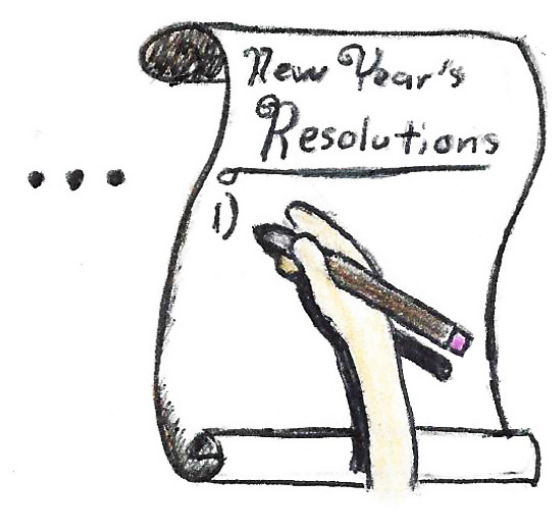 New Year's
Resolutions
...
1)